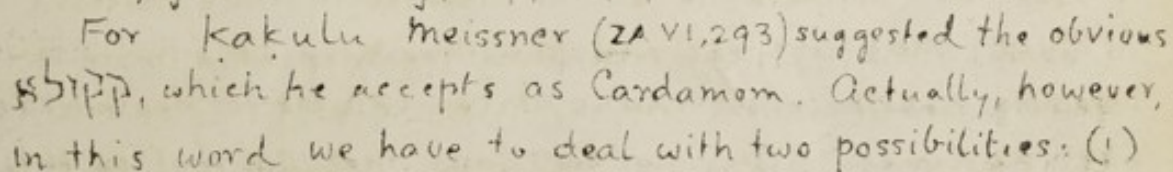 For ḳaḳulu Meissner (ZA VI, 293) suggested the obvious
קקולא, which he accepts as Cardamom. Actually, however,
in this word we have to deal with two possibilities: (1)